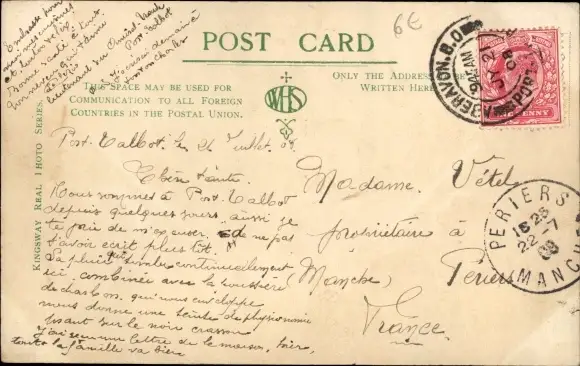 6€
POST CARD
THIS SPACE MAY BE USED FOR
COMMUNICATION TO ALL FOREIGN
COUNTRIES IN THE POSTAL UNION.
ONLY THE ADDRESS
WRITTEN HERE
WHS
KINGSWAY REAL PHOTO SERIES.
ABERAVON.B.O
PORT
PENNY
PERIERS
22-7
08
MANCHE
Port-Talbot, le 21 Juillet 08
Chère tante.
Nous sommes à Port-Talbot
depuis quelques jours, aussi je
te prie de m'excuser de ne pas
t'avoir écrit plus tôt.
La pluie qui tombe continuellement
ici, combinée avec la poussière
de charbon qui nous enveloppe
nous donne une teinte de physionomie
tirant sur le noir crasseux
J'ai reçu une lettre de la maison, hier,
toute la famille va bien
Embrasse bien
mes cousines
et
Bonne santé à tout
Lieutenant du
Port Talbot
Madame Vétel
propriétaire à
Periers
(Manche)
France